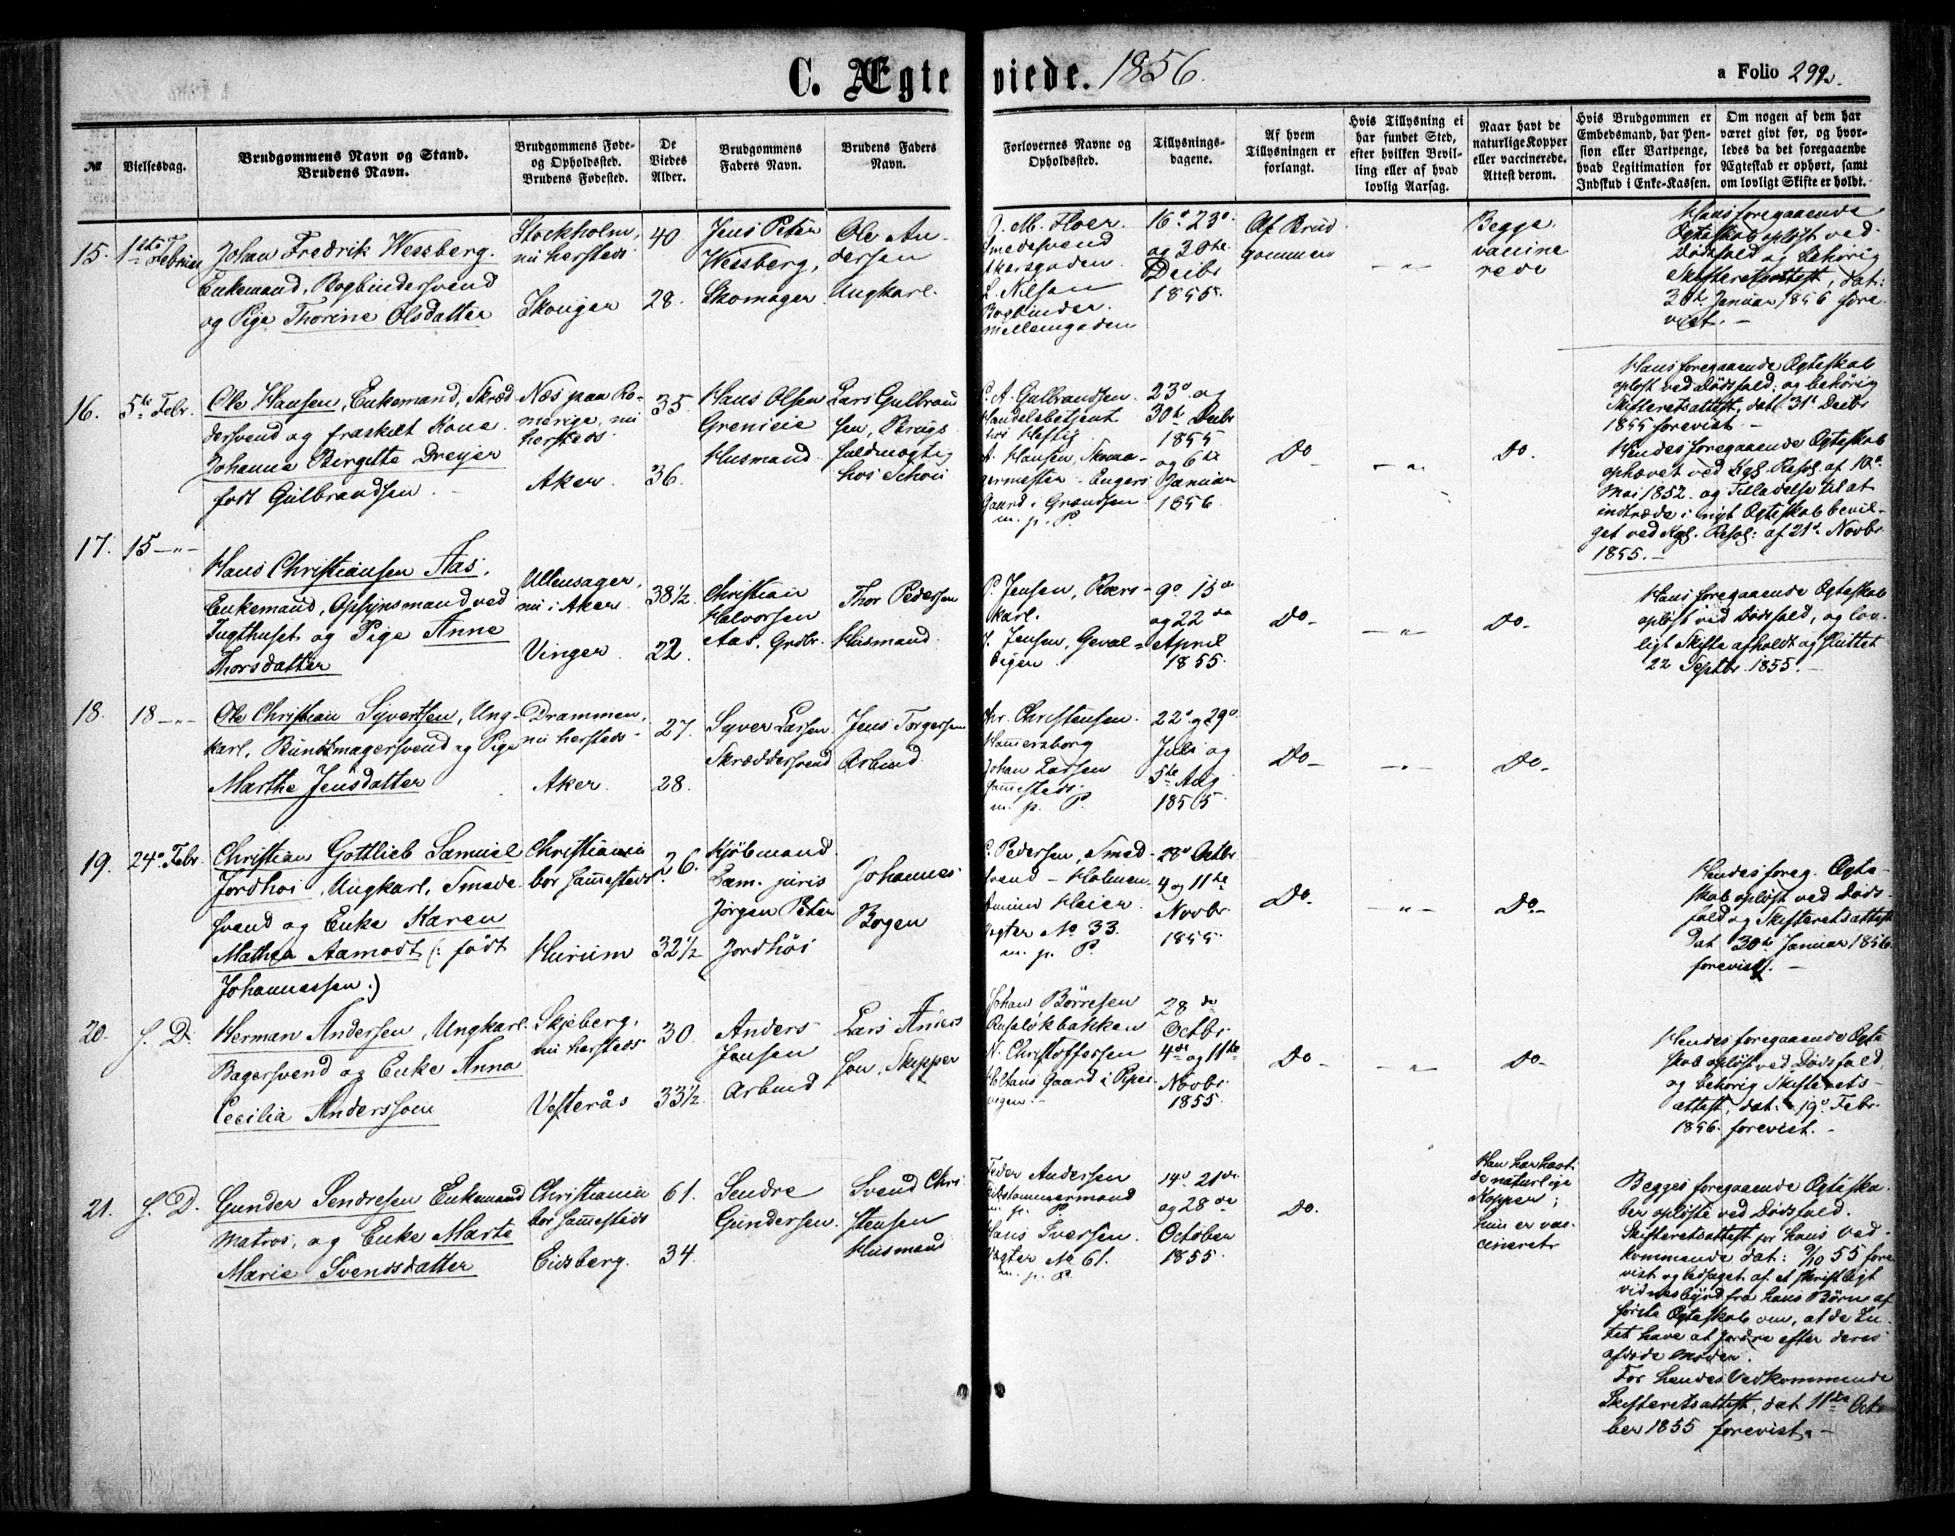 C. Ægteviede. 1856.
a Folio 292.
№
Vielsesdag.
Brudgommens Navn og Stand.
Brudens Navn.
Brudgommens Føde-
og Opholdssted.
Brudens Fødested.
De
Viedes
Alder.
Brudgommens
Faders Navn.
Brudens Faders
Navn.
Forlovernes Navne og
Opholdssted.
Tillysnings-
dagene.
Af hvem
Tillysningen er
forlangt.
Hvis Tillysning ei
har fundet Sted,
efter hvilken Bevil-
ling eller af hvad
lovlig Aarsag.
Naar havt de
naturlige Kopper
eller vaccinerede.
Attest derom.
Hvis Brudgommen er
Embedsmand, har Pen-
sion eller Vartpenge,
hvad Legitimation for
Indskud i Enke-Kassen.
Om nogen af dem har
været givt før, og hvor-
ledes da det foregaaende
Ægteskab er ophørt, samt
om lovligt Skifte er holdt.
15.
1ste Februar
Johan Fredrik Wessberg.
Enkemand, Bogbindersvend
og Pige Thorine Olsdatter
Stockholm,
nu hersteds
Skouger
40
28.
Jens Peter
Wessberg,
Skomager
Ole An-
dersen
Ungkarl.
O. M. Floer.
Smedesvend
Akersgaden.
L. Nilsen
Bogbinder.
Mellemgaden
16de 23de
og 30te
Decbr
1855.
Af Brud
gommen
— " —
Begge
vaccine
rede
Hans foregaaende
Ægteskab opløst ved
Dødsfald og behørig
Skifteretsattest, dat:
30te Januar 1856 fore
vist. —
16.
5te Febr.
Ole Hansen, Enkemand, Skræd
dersvend og fraskilt Kone
Johanne Birgitte Dreyer
født Gulbrandsen. —
Næs paa Ro-
merige, nu
hersteds
Aker.
35.
36.
Hans Olsen
Grenieie
Husmand
Lars Gulbrand
sen, Brugs
fuldmægtig
hos Schou
P. A. Gulbrandsen.
Handelsbetjent
hos Heftij
A. Hansen, Tøm-
mermester - Engers
Gaard i Grændsen
m. p. P.
23de og
30te Decbr
1855
og 6te
Januar
1856
Do
— " —
Do.
Hans foregaaende Ægteskab
opløst ved Dødsfald: og behørig
Skifteretsattest, dat: 31te Decbr
1855 forevist —
Hendes foregaaende Ægteskab
ophævet ved Kgl. Resol. af 10de
Mai 1852. og Tilladelse til at
indtræde i nyt Ægteskab bevil-
get ved Kgl. Resol: af 21de Novbr
1855. —
17.
15 — " —
Hans Christiansen Aas,
Enkemand, Opsynsmand ved
Tugthuset og Pige Anne
Thorsdatter
Ullensager,
nu i Aker.
Vinger.
38½
22.
Christian
Halvorsen
Aas, Grdbr.
Thor Pedersen
Husmand.
P. Jensen, Rørs-
karl.
J. Jensen, Geval-
diger.
9de 15de
og 22de
April
1855.
Do-
— " —
Do-
Hans foregaaende Ægteskab
opløst ved Dødsfald, og lov-
ligt Skifte afholdt og sluttet
22 Septbr. 1855. —
18.
18 — " —
Ole Christian Syvertsen, Ung-
karl, Bundtmagersvend og Pige
Marthe Jensdatter
Drammen,
nu hersteds-
Aker.
27.
28.
Syver Larsen
Skræddersvend
Jens Torgersen
Arbmd
Chr. Christensen.
Hammersborg
Johan Larsen
sammesteds.
m. p. P.
22de og 29de
Juli og
5te Aug
1855.
Do-
— " —
Do-
19.
24de Febr.
Christian Gottlieb Samuel
Jordhøi, Ungkarl, Smede
svend og Enke Karen
Mathea Aamodt (: født
Johannessen.)
Christiania
bor sammesteds
Hurum
26.
32½
Kjøbmand
Exam. juris
Jørgen Peter
Jordhøi
Johannes
Bogen
P. Pedersen, Smed-
svend - Holmen
Heier.
Vægter No 33.
m. p. P.
28de Octbr
4 og 11te
Novbr.
1855.
Do.
— " —
Do.-
Hendes foreg. Ægte-
skab opløst ved Døds-
fald og Skifteretsattest
Dat 30te Januar 1856.
forevist. —
20.
s. D.
Herman Andersen, Ungkarl.
Bagersvend og Enke Anna
Cecilia Anderssoin
Skjeberg,
nu hersteds
Vesterås
30
33½
Anders
Jensen
Arbmd
Lars Anders
son, Skipper
Johan Børresen
Ruseløkbakken
N. Christoffersen
Holtans Gaard i Piper
vigen.-
28de
Octbr.
4de og 11te
Novbr.
1855.
Do-
— " —
Do-
Hendes foregaaende Ægte
skab opløst ved Dødsfald,
og behørig Skifterets-
attest, dat: 19de Febr.
1856. forevist. —
21.
s. D.
Gunder Sendresen Enkemand
Matros, og Enke Marte
Marie Svendsdatter
Christiania
bor sammesteds
Eidsberg.
61.
34.
Sendre
Gundersen.
Svend Chri
stensen
Husmand
Peder Andersen
Skibstømmermand
m. p. P.
Hans Iversen.
Vægter No 61.
m. p. P.
14de 21de
og 28de
October
1855.
Do.
Han har havt
de naturlige
Kopper;
hun er vac-
cineret
Begges foregaaende Ægteska-
ber opløste ved Dødsfald.
Skifteretsattest for hans Ved-
kommende dat: 9/10 55 fore
vist og ledsaget af et skriftligt
vidnesbyrd fra hans Børn af
første Ægteskab om, at de In-
tet have at fordre efter deres
afdøde Moder.
For hendes Vedkommende
Skifteretsattest, dat 11te Octo
ber 1855 forevist. —